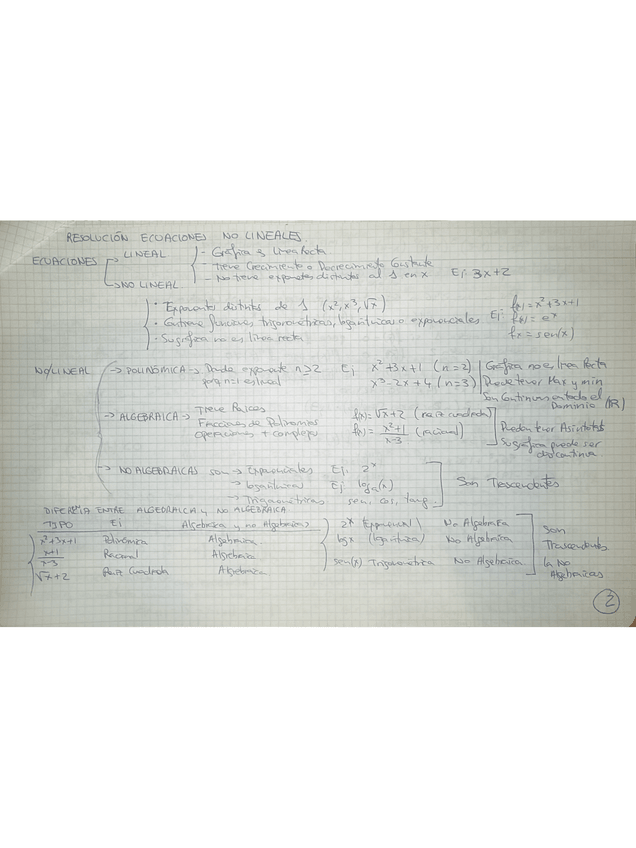 RESOLUCIÓN ECUACIONES NO LINEALES
ECUACIONES → LINEAL - Gráfica es línea Recta
- Tiene Crecimiento o Decrecimiento Constante
- No tiene exponentes distintos al 1 en x Ej 3x+2
→ NO LINEAL
• Exponentes distintos de 1 (x², x³, √x)
• Contiene funciones trigonométricas, logarítmicas o exponenciales
• Su gráfica no es línea recta
Ej: f(x) = x²+3x+1
f(x) = eˣ
fx = sen(x)
NO LINEAL → POLINÓMICA → Donde exponente n≥2 Ej x²+3x+1 (n=2)
porq n=1 es lineal x³-2x+4 (n=3)
Gráfica no es línea Recta
Puede tener Max y min
Son Continuas en todo el
Dominio (ℝ)
→ ALGEBRAICA → Tiene Raíces f(x) = √x+2 (raíz cuadrada)
Fracciones de Polinomios f(x) = x²+1/x-3 (racional)
operaciones + complejas
Pueden tener Asíntotas
Su gráfica puede ser
discontinua
→ NO ALGEBRAICAS son → Exponenciales Ej: 2ˣ
→ logarítmica Ej: logₐ(x)
→ Trigonométricas sen, cos, tang.
Son Trascendentes
DIFERENCIA ENTRE ALGEBRAICA y NO ALGEBRAICA
TIPO Ej Algebraica y no Algebraicas
x²+3x+1 Polinómica Algebraica
x+1/x-3 Racional Algebraica
√x+2 Raíz Cuadrada Algebraica
2ˣ Exponencial No Algebraica
logx (logarítmica) No Algebraica
sen(x) Trigonométrica No Algebraica
Son
Trascendentes
la No
Algebraicas
2